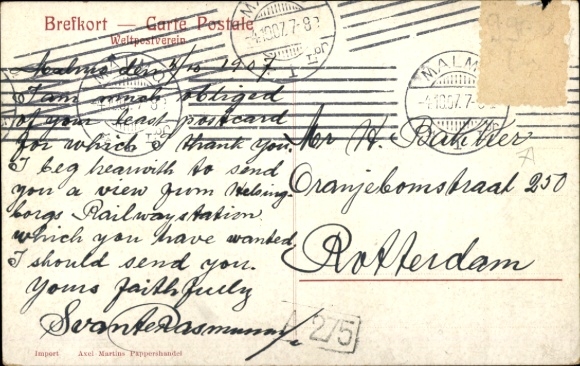 Brefkort — Carte Postale
Weltpostverein
MALMÖ
4.10.07. 7-8
1 LBR
Malmö den 4/10 1907
I am much obliged
of your least postcard
for which I thank you.
I beg hearwith to send
you a view from Helsing-
borgs Railwaystation
which you have wanted
I should send you.
Yours faithfully
Svante Rasmusson
Mr H. Bakker
Oranjebomstraat 250
Rotterdam
275
Import Axel Martins Pappershandel